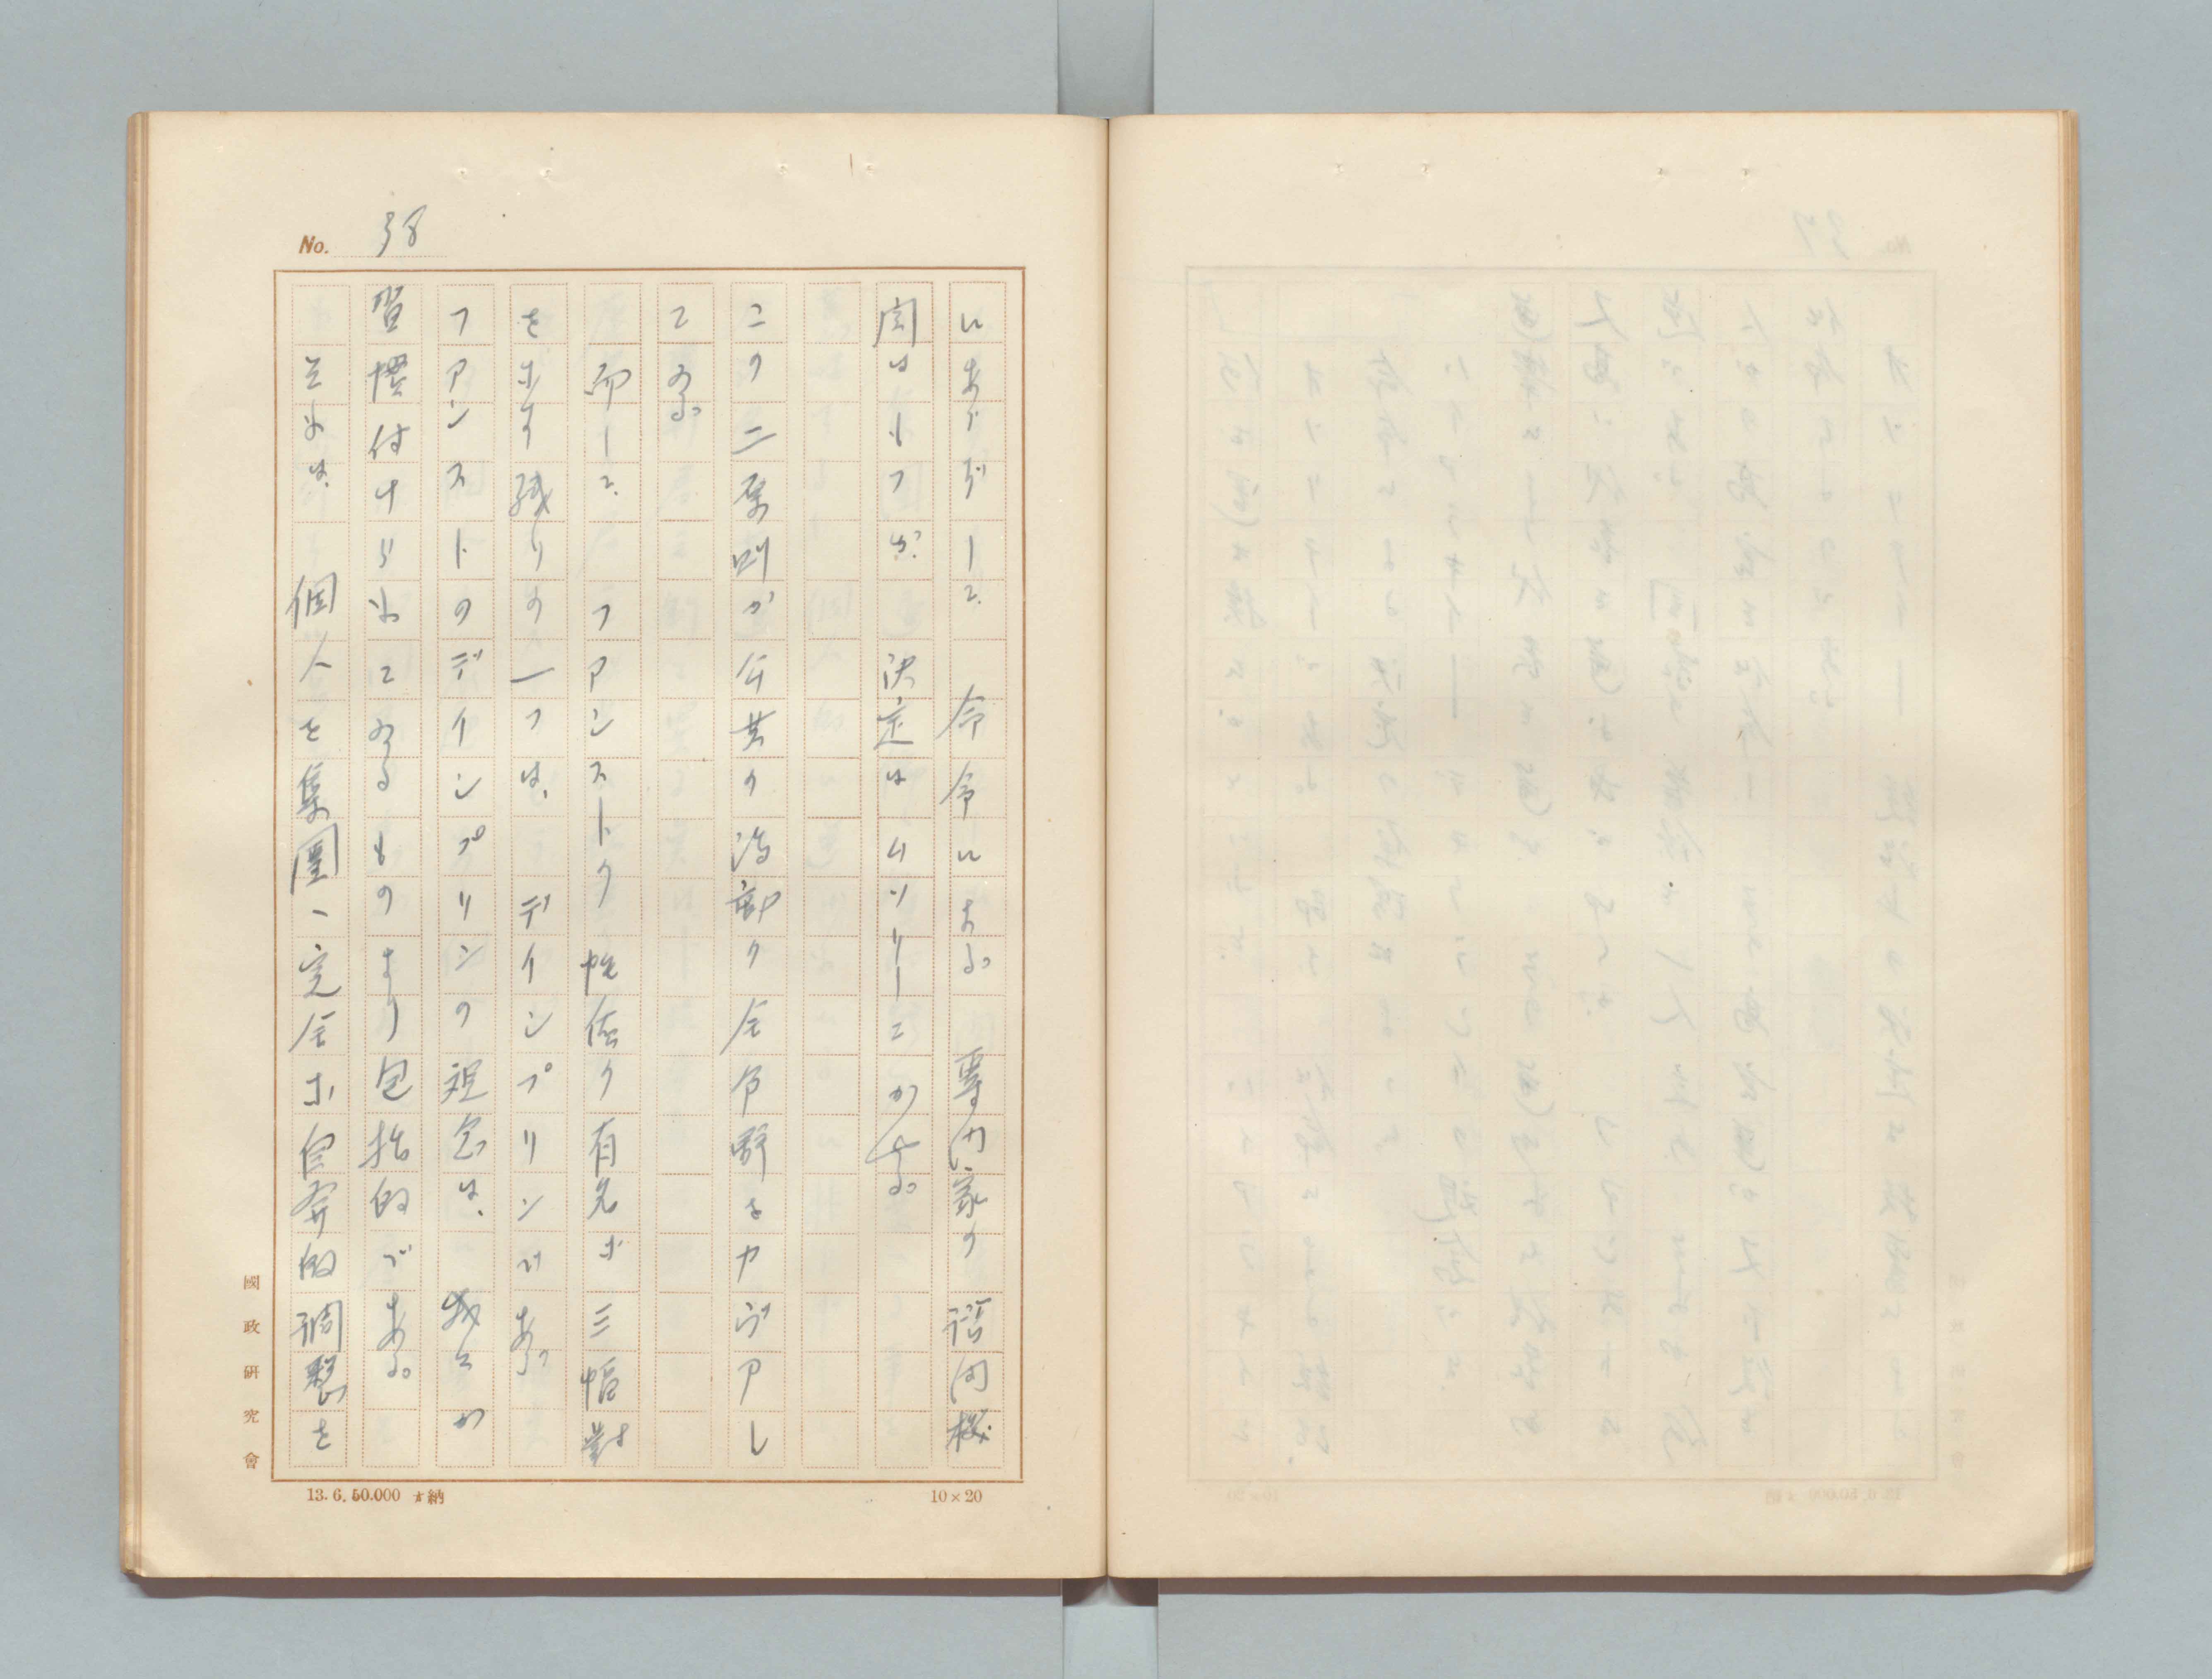 No. 38
にあらずして、命令にある。専門家の諮問機
関はもつが、決定はムソリーニがする。
この二原則が公共の活動の全分野をカヴアし
てゐる。
而して、フアシストの有名な三幅對
を示す残りの一つは、デイシプリンである。
フアシストのデイシプリンの観念は、我々が
習慣付けられてゐるものより包括的である。
それは、個人を集團へ完全な自発的調整を
國政研究會
13. 6. 50.000 納
10×20